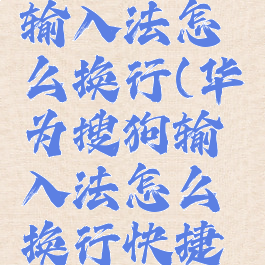 输入法怎
么换行(华
为搜狗输
入法怎么
换行快捷